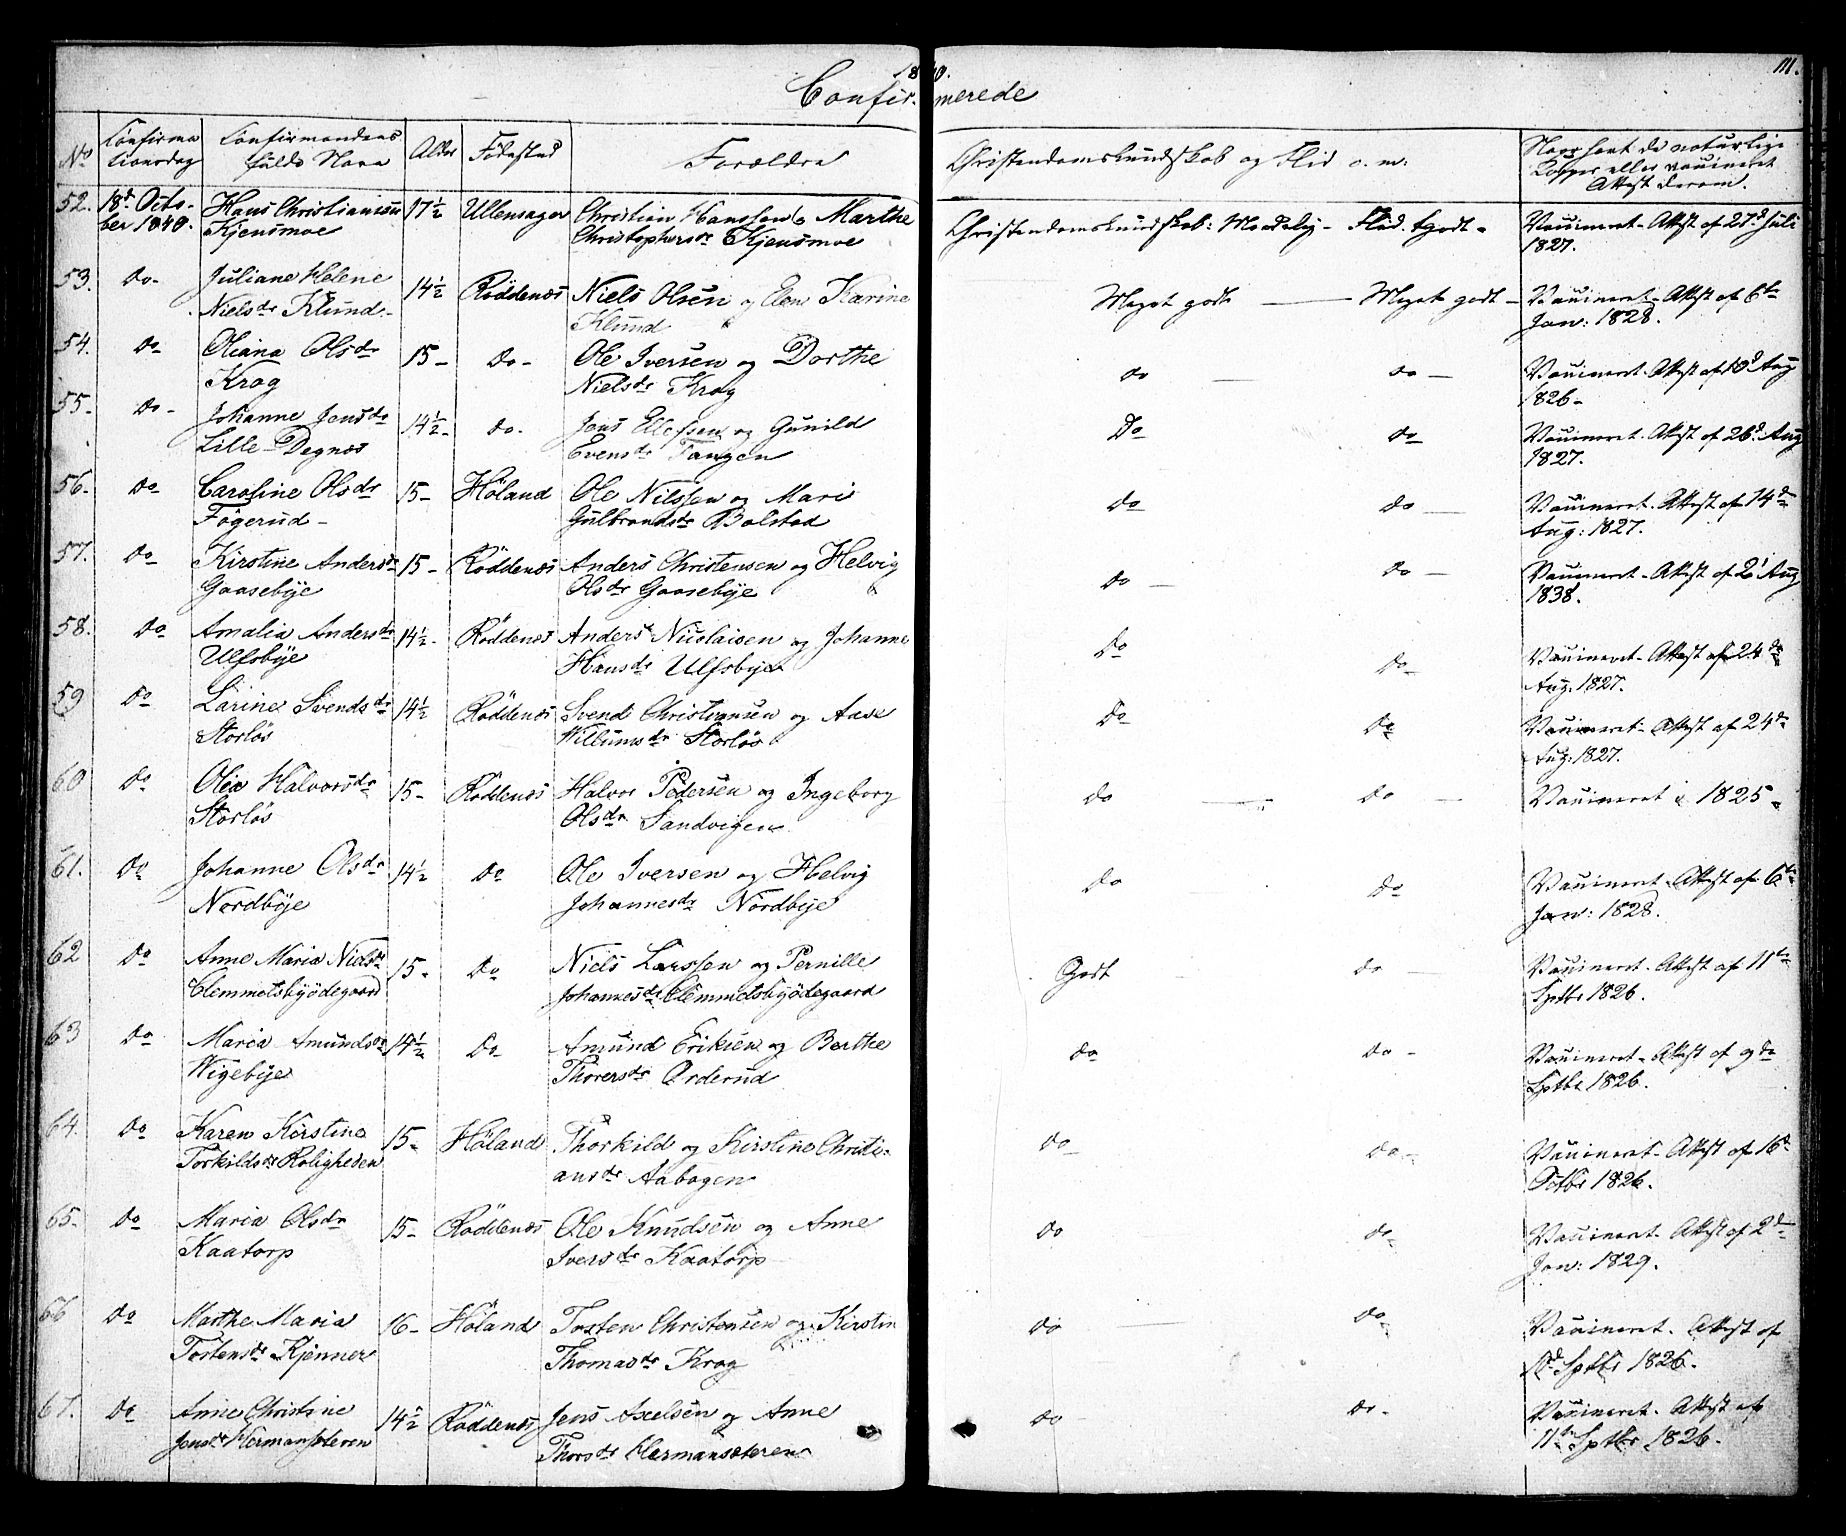 1840.
111.
Confirmerede
No Confirmationsdag Confirmandens fulde Navn Alder Födested Forældre Christendomskundskab og Flid o. m. Naar havt de naturlige Kopper eller vaccineret Attest derom.
52. 18de October 1840. Hans Christiansen Kjensmoe 17½ Ullensager Christian Hanssen & Marthe Christophersdr Kjensmoe Christendomskundskab: Maadelig - Flid: tgodt - Vaccineret - Attest af 27d Juli 1827.
53. Do - Juliane Helene Nielsdr Klund - 14½ Röddenæs Niels Olsen og Elen Karine Klund Meget godt Meget godt - Vaccineret - Attest af 6te Jan: 1828.
54. Do Oliana Olsdr Krog 15 - Do - Ole Iversen og Dorthe Nielsdr Krog do do - Vaccineret. Attest af 10d Aug 1826 -
55. Do - Johanne Jensdr Lille Degnæs 14½ - Do - Jens Ellefsen og Gunild Evensdr Tangen Do do Vaccineret. Attest af 26d Aug 1827.
56. Do Caroline Olsdr Fögerud - 15 - Höland Ole Nilssen og Mari Gulbrandsdr Bolstad do do - Vaccineret. Attest af 14de Aug: 1827.
57. Do Kirstine Andersdr Gaasebye 15 - Röddenæs Anders Christensen og Helvig Olsdr Gaasebye do - do - Vaccineret - Attest af 2 Aug 1838.
58. Do Amalia Andersdr Ulfsbye 14½ - Röddenæs Anders Nicolaisen og Johanne Hansdr Ulfsbye Do do - Vaccineret - Attest af 24de Aug. 1827.
59 Do Larine Svendsdr Storløs 14½ Röddenæs Svend Christiansen og Aase Willumsdr Storløs Do Do Vaccineret - Attest af 24de Aug. 1827.
60 Do Olia Halvorsdr Storløs 15 - Röddenæs Halvor Pedersen og Ingeborg Olsdr Sandvigen do do - Vaccineret i 1825 -
61. Do Johanne Olsdr Nordbye 14½ Do Ole Iversen og Helvig Johannesdr Nordbye do do Vaccineret. Attest af 6te Jan: 1828.
62 Do Anne Maria Nielsdr Clemmetsbyödegaard 15 - Do Niels Larssen og Pernille Johannesdr Clemmetsbyödegaard Godt do - Vaccineret. Attest af 11te Sptbr 1826.
63 Do Maria Amundsdr Wigebye 14½ Do Amund Eriksen og Berthe Thoresdr Orderud do do - Vaccineret - Attest af 9de Sptbr 1826.
64. Do Karen Kirstine Torkildsdr Roligheden 15 - Höland Thorkild og Kirstine Christiansdr Aabogen do do - Vaccineret - Attest af 16de Octbr 1826.
65. Do Maria Olsdr Kaatorp 15 - Röddenæs Ole Knudsen og Anne Iversdr Kaatorp do do Vaccineret - Attest af 2d Jan: 1829.
66 Do Marthe Maria Tostensdr Kjenner 16 - Höland Tosten Christensen og Kirstin Thomasdr Krog do do Vaccineret. Attest af Sptbr 1826.
67. Do Anne Christine Jensdr Hermansæteren 14½ Röddenæs Jens Axelsen og Anne Thorsdr Hermansæteren do - do - Vaccineret. Attest af 11te Sptbr 1826.